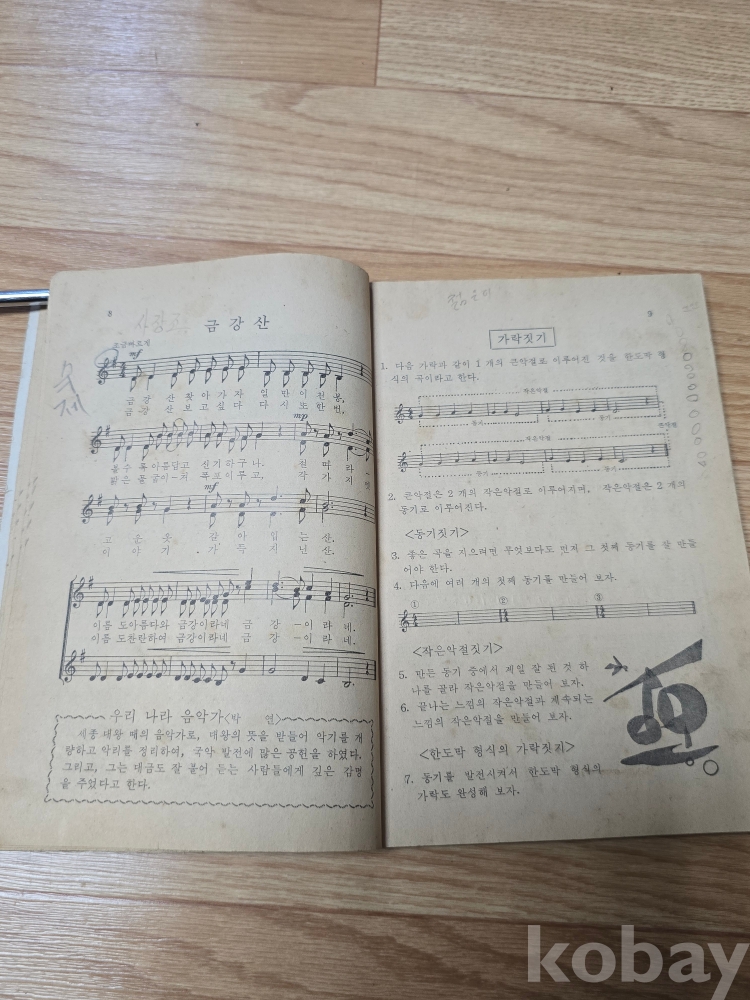 8
금강산
조금빠르게
mf
금강 산찾아가자 일만이천봉,
금강 산보고싶다 다시또한번,
mp
볼수록아름답고 신기하구나. 철따라
맑은물굽이쳐 폭포이루고, 갖가지
mf
고운옷 갈아입는산.
이야기 가득지닌산.
이름도아름다와 금강이라네 금강-이라네.
이름도찬란하여 금강이라네 금강-이라네.
우리 나라 음악가<박 연>
세종 대왕 때의 음악가로, 대왕의 뜻을 받들어 악기를 개
량하고 악리를 정리하여, 국악 발전에 많은 공헌을 하였다.
그리고, 그는 대금도 잘 불어 듣는 사람들에게 깊은 감명
을 주었다고 한다.
숙제
9
가락짓기
1. 다음 가락과 같이 1 개의 큰악절로 이루어진 것을 한도막 형
식의 곡이라고 한다.
작은악절
동기 동기
큰악절
작은악절
동기 동기
2. 큰악절은 2 개의 작은악절로 이루어지며, 작은악절은 2 개의
동기로 이루어진다.
<동기짓기>
3. 좋은 곡을 지으려면 무엇보다도 먼저 그 첫째 동기를 잘 만들
어야 한다.
4. 다음에 여러 개의 첫째 동기를 만들어 보자.
① ② ③
<작은악절짓기>
5. 만든 동기 중에서 제일 잘 된 것 하
나를 골라 작은악절을 만들어 보자.
6. 끝나는 느낌의 작은악절과 계속되는
느낌의 작은악절을 만들어 보자.
<한도막 형식의 가락짓기>
7. 동기를 발전시켜서 한도막 형식의
가락도 완성해 보자.
kobay